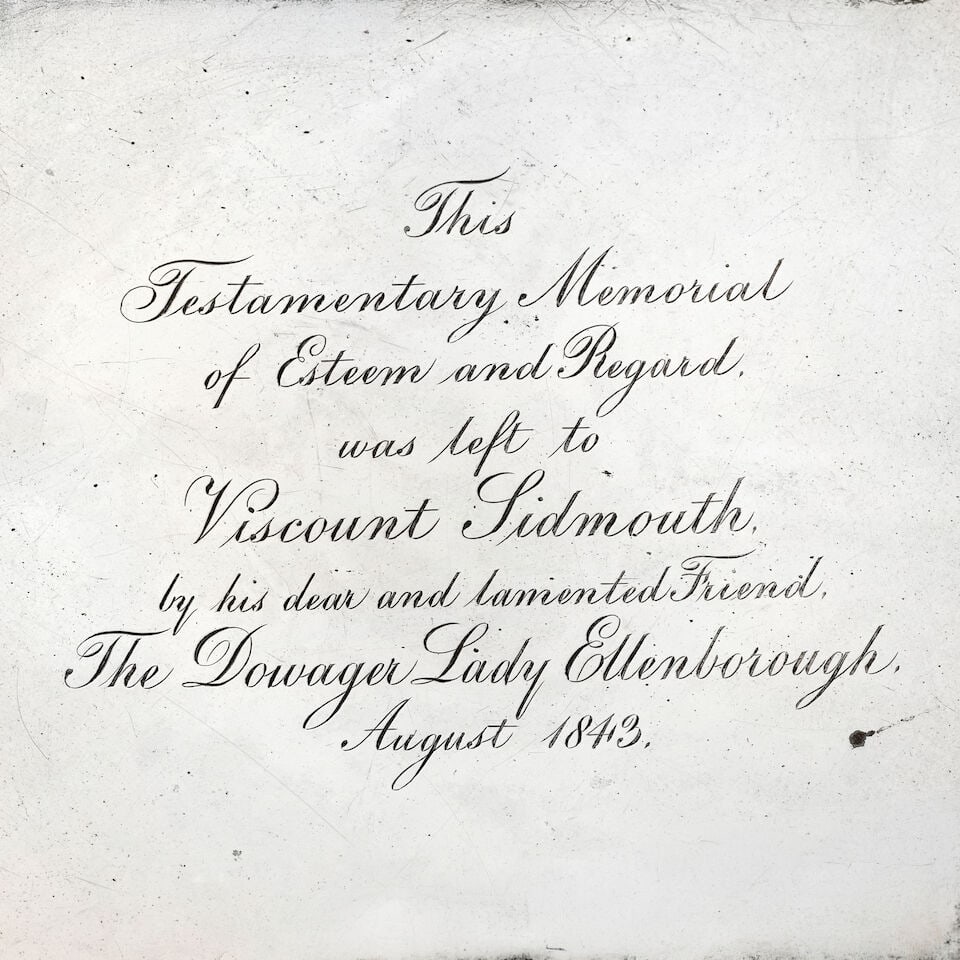 This
Testamentary Memorial
of Esteem and Regard,
was left to
Viscount Sidmouth,
by his dear and lamented Friend,
The Dowager Lady Ellenborough,
August 1843.